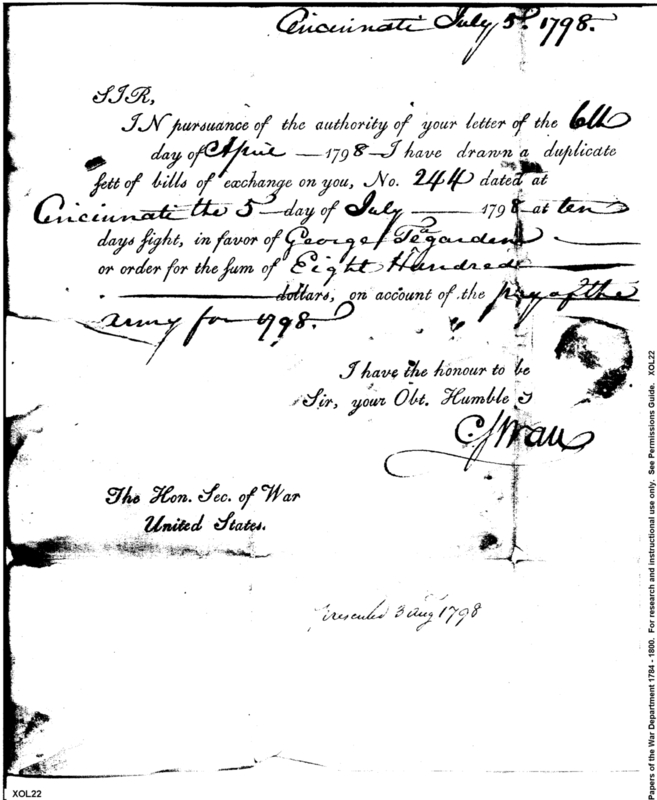 Cincinnati July 5th 1798.
SIR,
IN pursuance of the authority of your letter of the 6th
day of April — 1798 — I have drawn a duplicate
sett of bills of exchange on you, No. 244 dated at
Cincinnati the 5th day of July — 1798 at ten
days sight, in favor of George Tegarden
or order for the sum of Eight Hundred
dollars, on account of the pay of the
army for 1798.
I have the honour to be
Sir, your Obt. Humble S
C Swan
The Hon. Sec. of War
United States.
presented 3 Aug 1798
XOL22
Papers of the War Department 1784 - 1800. For research and instructional use only. See Permissions Guide. XOL22